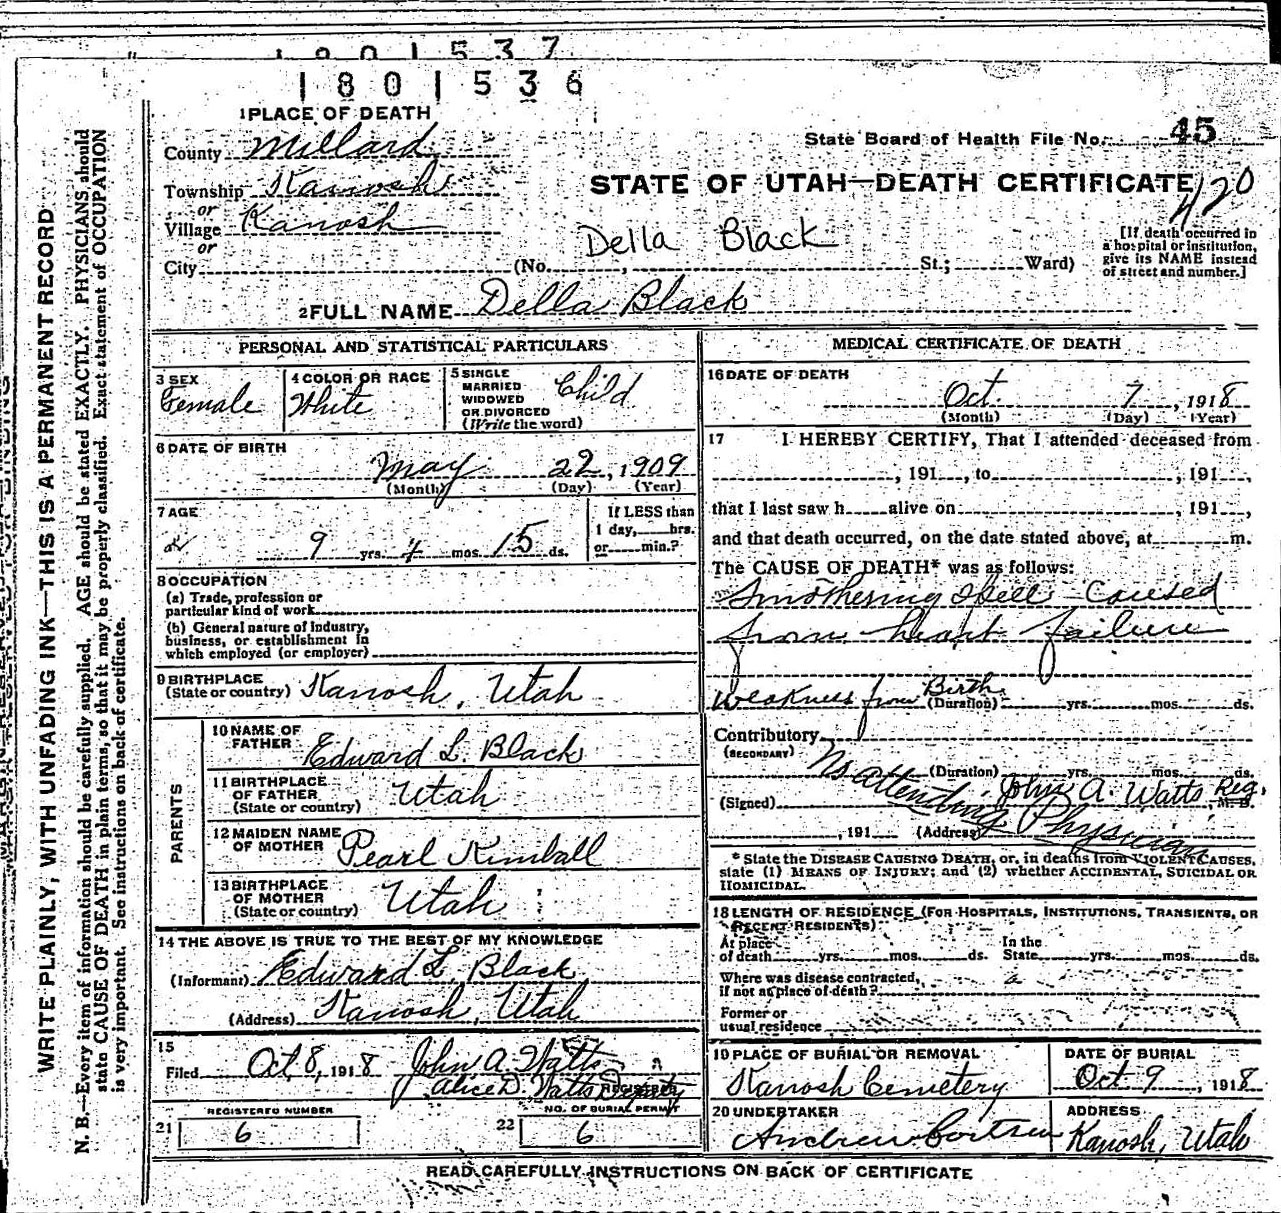 1801537
1801536
1 PLACE OF DEATH
County Millard
State Board of Health File No. 45
Township Kanosh
or
STATE OF UTAH—DEATH CERTIFICATE
420
Village Kanosh
or
Della Black
[If death occurred in
a hospital or institution,
give its NAME instead
of street and number.]
City (No. , St.; Ward)
2 FULL NAME Della Black
PERSONAL AND STATISTICAL PARTICULARS
3 SEX
Female
4 COLOR OR RACE
White
5 SINGLE
MARRIED
WIDOWED
OR DIVORCED
(Write the word)
Child
6 DATE OF BIRTH
May 22, 1909
(Month) (Day) (Year)
7 AGE
9 yrs. 4 mos. 15 ds.
If LESS than
1 day, hrs.
or min.?
8 OCCUPATION
(a) Trade, profession or
particular kind of work
(b) General nature of industry,
business, or establishment in
which employed (or employer)
9 BIRTHPLACE
(State or country) Kanosh, Utah
PARENTS
10 NAME OF
FATHER Edward L. Black
11 BIRTHPLACE
OF FATHER
(State or country) Utah
12 MAIDEN NAME
OF MOTHER Pearl Kimball
13 BIRTHPLACE
OF MOTHER
(State or country) Utah
14 THE ABOVE IS TRUE TO THE BEST OF MY KNOWLEDGE
(Informant) Edward L. Black
(Address) Kanosh, Utah
15
Filed Oct, 8, 1918 John A. Watts
Alice D. Watts Deputy
REGISTRAR
REGISTERED NUMBER
21 6
NO. OF BURIAL PERMIT
22 6
MEDICAL CERTIFICATE OF DEATH
16 DATE OF DEATH
Oct. 7, 1918
(Month) (Day) (Year)
17 I HEREBY CERTIFY, That I attended deceased from
, 191 , to , 191 ,
that I last saw h alive on , 191 ,
and that death occurred, on the date stated above, at m.
The CAUSE OF DEATH* was as follows:
Smothering Spell Caused
from heart failure
Weakness from Birth
(Duration) yrs. mos. ds.
Contributory
(SECONDARY)
(Duration) yrs. mos. ds.
No attending Physician
(Signed) John A. Watts Reg. M. D.
, 191 (Address)
* State the DISEASE CAUSING DEATH, or, in deaths from VIOLENT CAUSES,
state (1) MEANS OF INJURY; and (2) whether ACCIDENTAL, SUICIDAL OR
HOMICIDAL.
18 LENGTH OF RESIDENCE (FOR HOSPITALS, INSTITUTIONS, TRANSIENTS, OR
RECENT RESIDENTS)
At place
of death yrs. mos. ds.
In the
State yrs. mos. ds.
Where was disease contracted,
if not at place of death?
Former or
usual residence
19 PLACE OF BURIAL OR REMOVAL
Kanosh Cemetery
DATE OF BURIAL
Oct 9, 1918
20 UNDERTAKER
Andrew
ADDRESS
Kanosh, Utah
READ CAREFULLY INSTRUCTIONS ON BACK OF CERTIFICATE
WRITE PLAINLY, WITH UNFADING INK—THIS IS A PERMANENT RECORD
N. B.—Every item of information should be carefully supplied. AGE should be stated EXACTLY. PHYSICIANS should
state CAUSE OF DEATH in plain terms, so that it may be properly classified. Exact statement of OCCUPATION
is very important. See instructions on back of certificate.